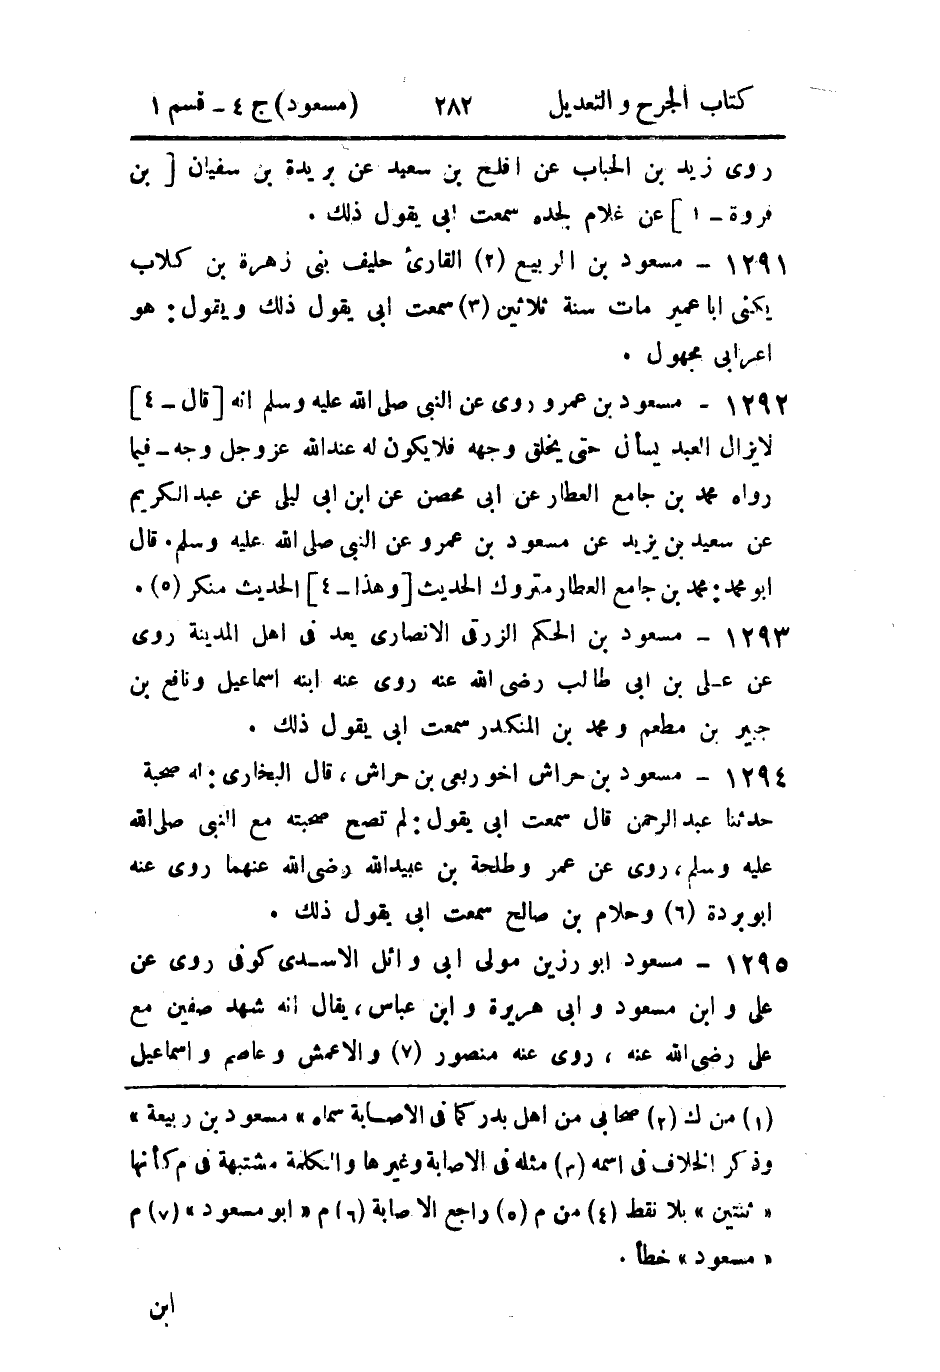 كتاب الجرح و التعديل ٢٨٢ (مسعود) ج ٤ - قسم ١
روى زيد بن الحباب عن افلح بن سعيد عن بريدة بن سفيان [ بن
فروة - ١ ] عن غلام لجده سمعت ابى يقول ذلك .
١٢٩١ - مسعود بن الربيع (٢) القارئ حليف بنى زهرة بن كلاب
يكنى ابا عمير مات سنة ثلاثين (٣) سمعت ابى يقول ذلك ويقول : هو
اعرابى مجهول .
١٢٩٢ - مسعود بن عمرو روى عن النبى صلى الله عليه وسلم انه [ قال - ٤ ]
لايزال العبد يسأل حتى يخلق وجهه فلايكون له عندالله عزوجل وجه - فيما
رواه محمد بن جامع العطار عن ابى محصن عن ابن ابى ليلى عن عبد الكريم
عن سعيد بن يزيد عن مسعود بن عمرو عن النبى صلى الله عليه وسلم . قال
ابو محمد : محمد بن جامع العطار متروك الحديث [ وهذا - ٤ ] الحديث منكر (٥) .
١٢٩٣ - مسعود بن الحكم الزرقى الانصارى يعد فى اهل المدينة روى
عن على بن ابى طالب رضى الله عنه روى عنه ابنه اسماعيل ونافع بن
جبير بن مطعم و محمد بن المنكدر سمعت ابى يقول ذلك .
١٢٩٤ - مسعود بن حراش اخو ربعى بن حراش ، قال البخارى : له صحبة
حدثنا عبد الرحمن قال سمعت ابى يقول : لم تصح صحبته مع النبى صلى الله
عليه وسلم ، روى عن عمر وطلحة بن عبيدالله رضى الله عنهما روى عنه
ابو بردة (٦) وحلام بن صالح سمعت ابى يقول ذلك .
١٢٩٥ - مسعود ابو رزين مولى ابى وائل الاسدى كوفى روى عن
على و ابن مسعود و ابى هريرة و ابن عباس ، يقال انه شهد صفين مع
على رضى الله عنه ، روى عنه منصور (٧) والاعمش و عاصم و اسماعيل
(١) من ك (٢) صحابى من اهل بدر كما فى الاصابة سماه « مسعود بن ربيعة »
وذكر الخلاف فى اسمه (٣) مثله فى الاصابة وغيرها والكلمة مشتبهة فى م كأنها
« ثنتين » بلا نقط (٤) من م (٥) راجع الاصابة (٦) م « ابو مسعود » (٧) م
« مسعود » خطأ .
ابن